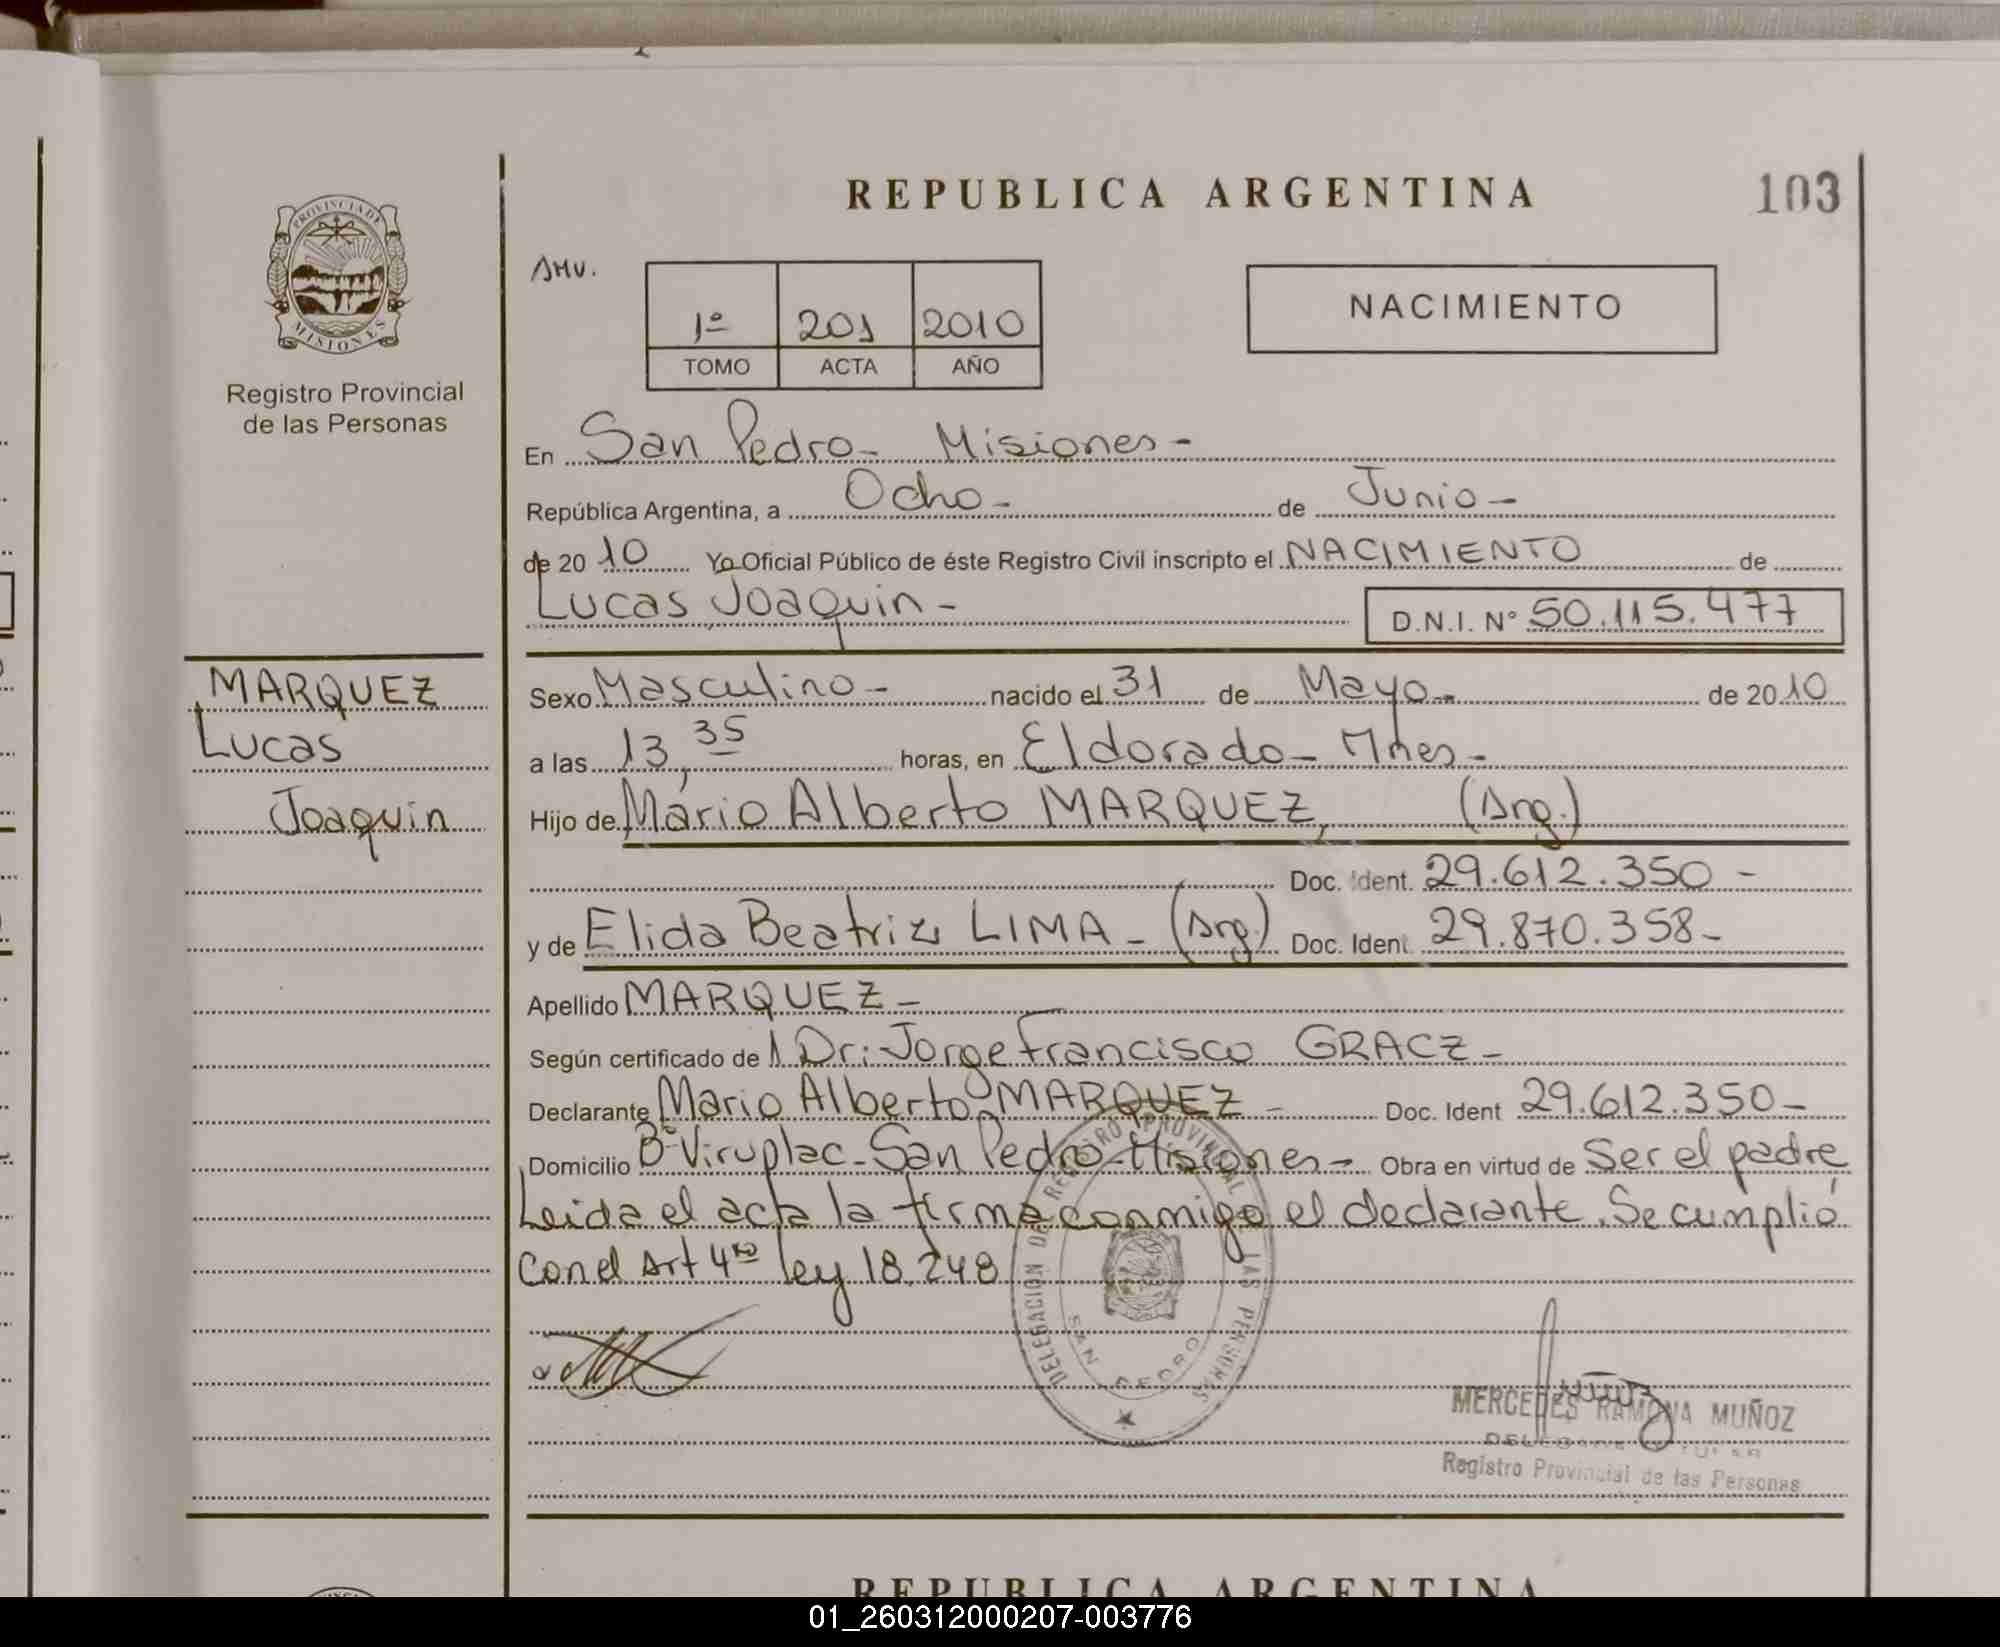 REPUBLICA ARGENTINA
103
PROVINCIA DE
MISIONES
Registro Provincial
de las Personas
AMV.
1º 201 2010
TOMO ACTA AÑO
NACIMIENTO
En San Pedro - Misiones -
República Argentina, a Ocho - de Junio -
de 2010 Yo Oficial Público de éste Registro Civil inscripto el NACIMIENTO de
Lucas Joaquin - D.N.I. Nº 50.115.477
MARQUEZ
Lucas
Joaquin
Sexo Masculino - nacido el 31 de Mayo - de 2010
a las 13,35 horas, en Eldorado - Mnes -
Hijo de Mario Alberto MARQUEZ, (Arg.)
Doc. Ident. 29.612.350 -
y de Elida Beatriz LIMA - (Arg.) Doc. Ident. 29.870.358 -
Apellido MARQUEZ -
Según certificado de Dr: Jorge Francisco GRACZ -
Declarante Mario Alberto MARQUEZ - Doc. Ident 29.612.350 -
Domicilio Bº Viruplac - San Pedro - Misiones - Obra en virtud de Ser el padre
Leida el acta la firma conmigo el declarante. Se cumplió
con el Art 4to ley 18.248
DELEGACION DEL REGISTRO PROVINCIAL DE LAS PERSONAS
SAN PEDRO
MERCEDES RAMONA MUÑOZ
Registro Provincial de las Personas
REPUBLICA ARGENTINA
01_260312000207-003776